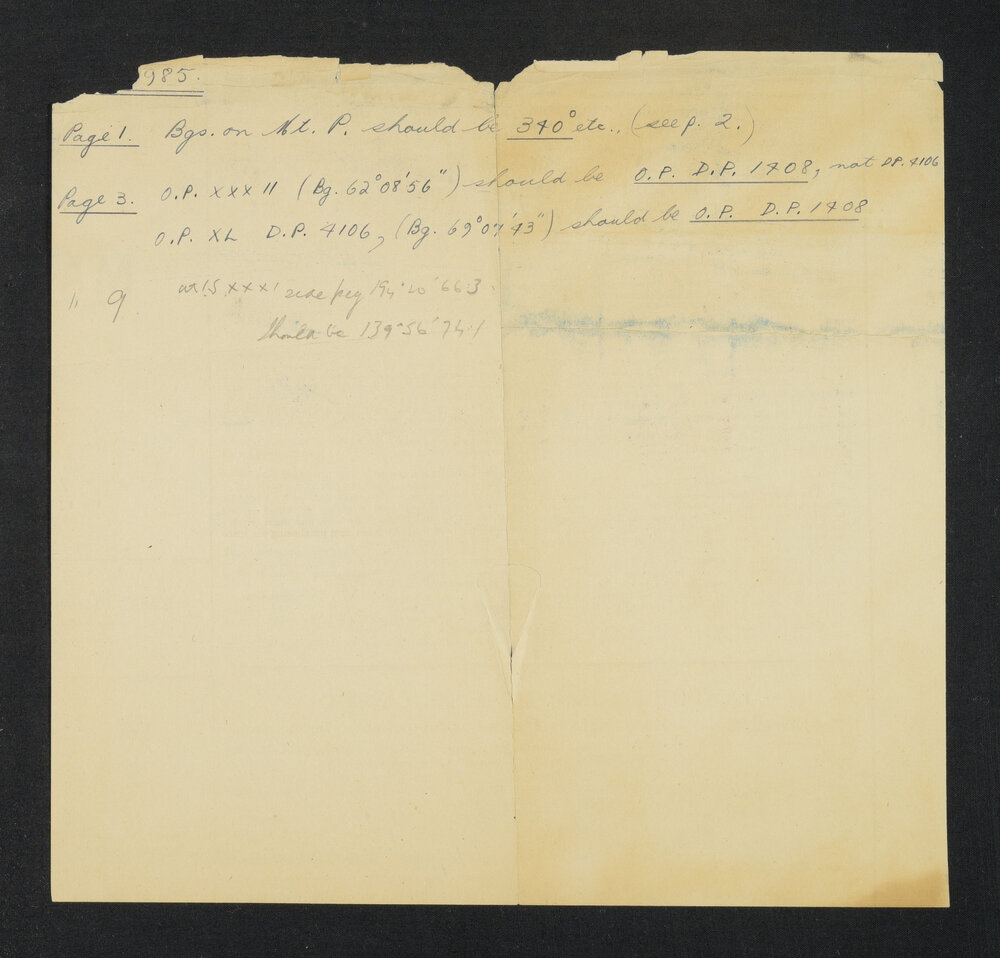 985.
Page 1. Bgs. on Mt. P. should be 340° etc., (see p. 2.)
Page 3. O.P. XXXII (Bg. 62°08'56") should be O.P. D.P. 1408, not D.P. 4106
O.P. XL D.P. 4106, (Bg. 69°07'43") should be O.P. D.P. 1408
" 9 at I.S XXXI side peg 194°20' 66.3
should be 139°56' 74.1